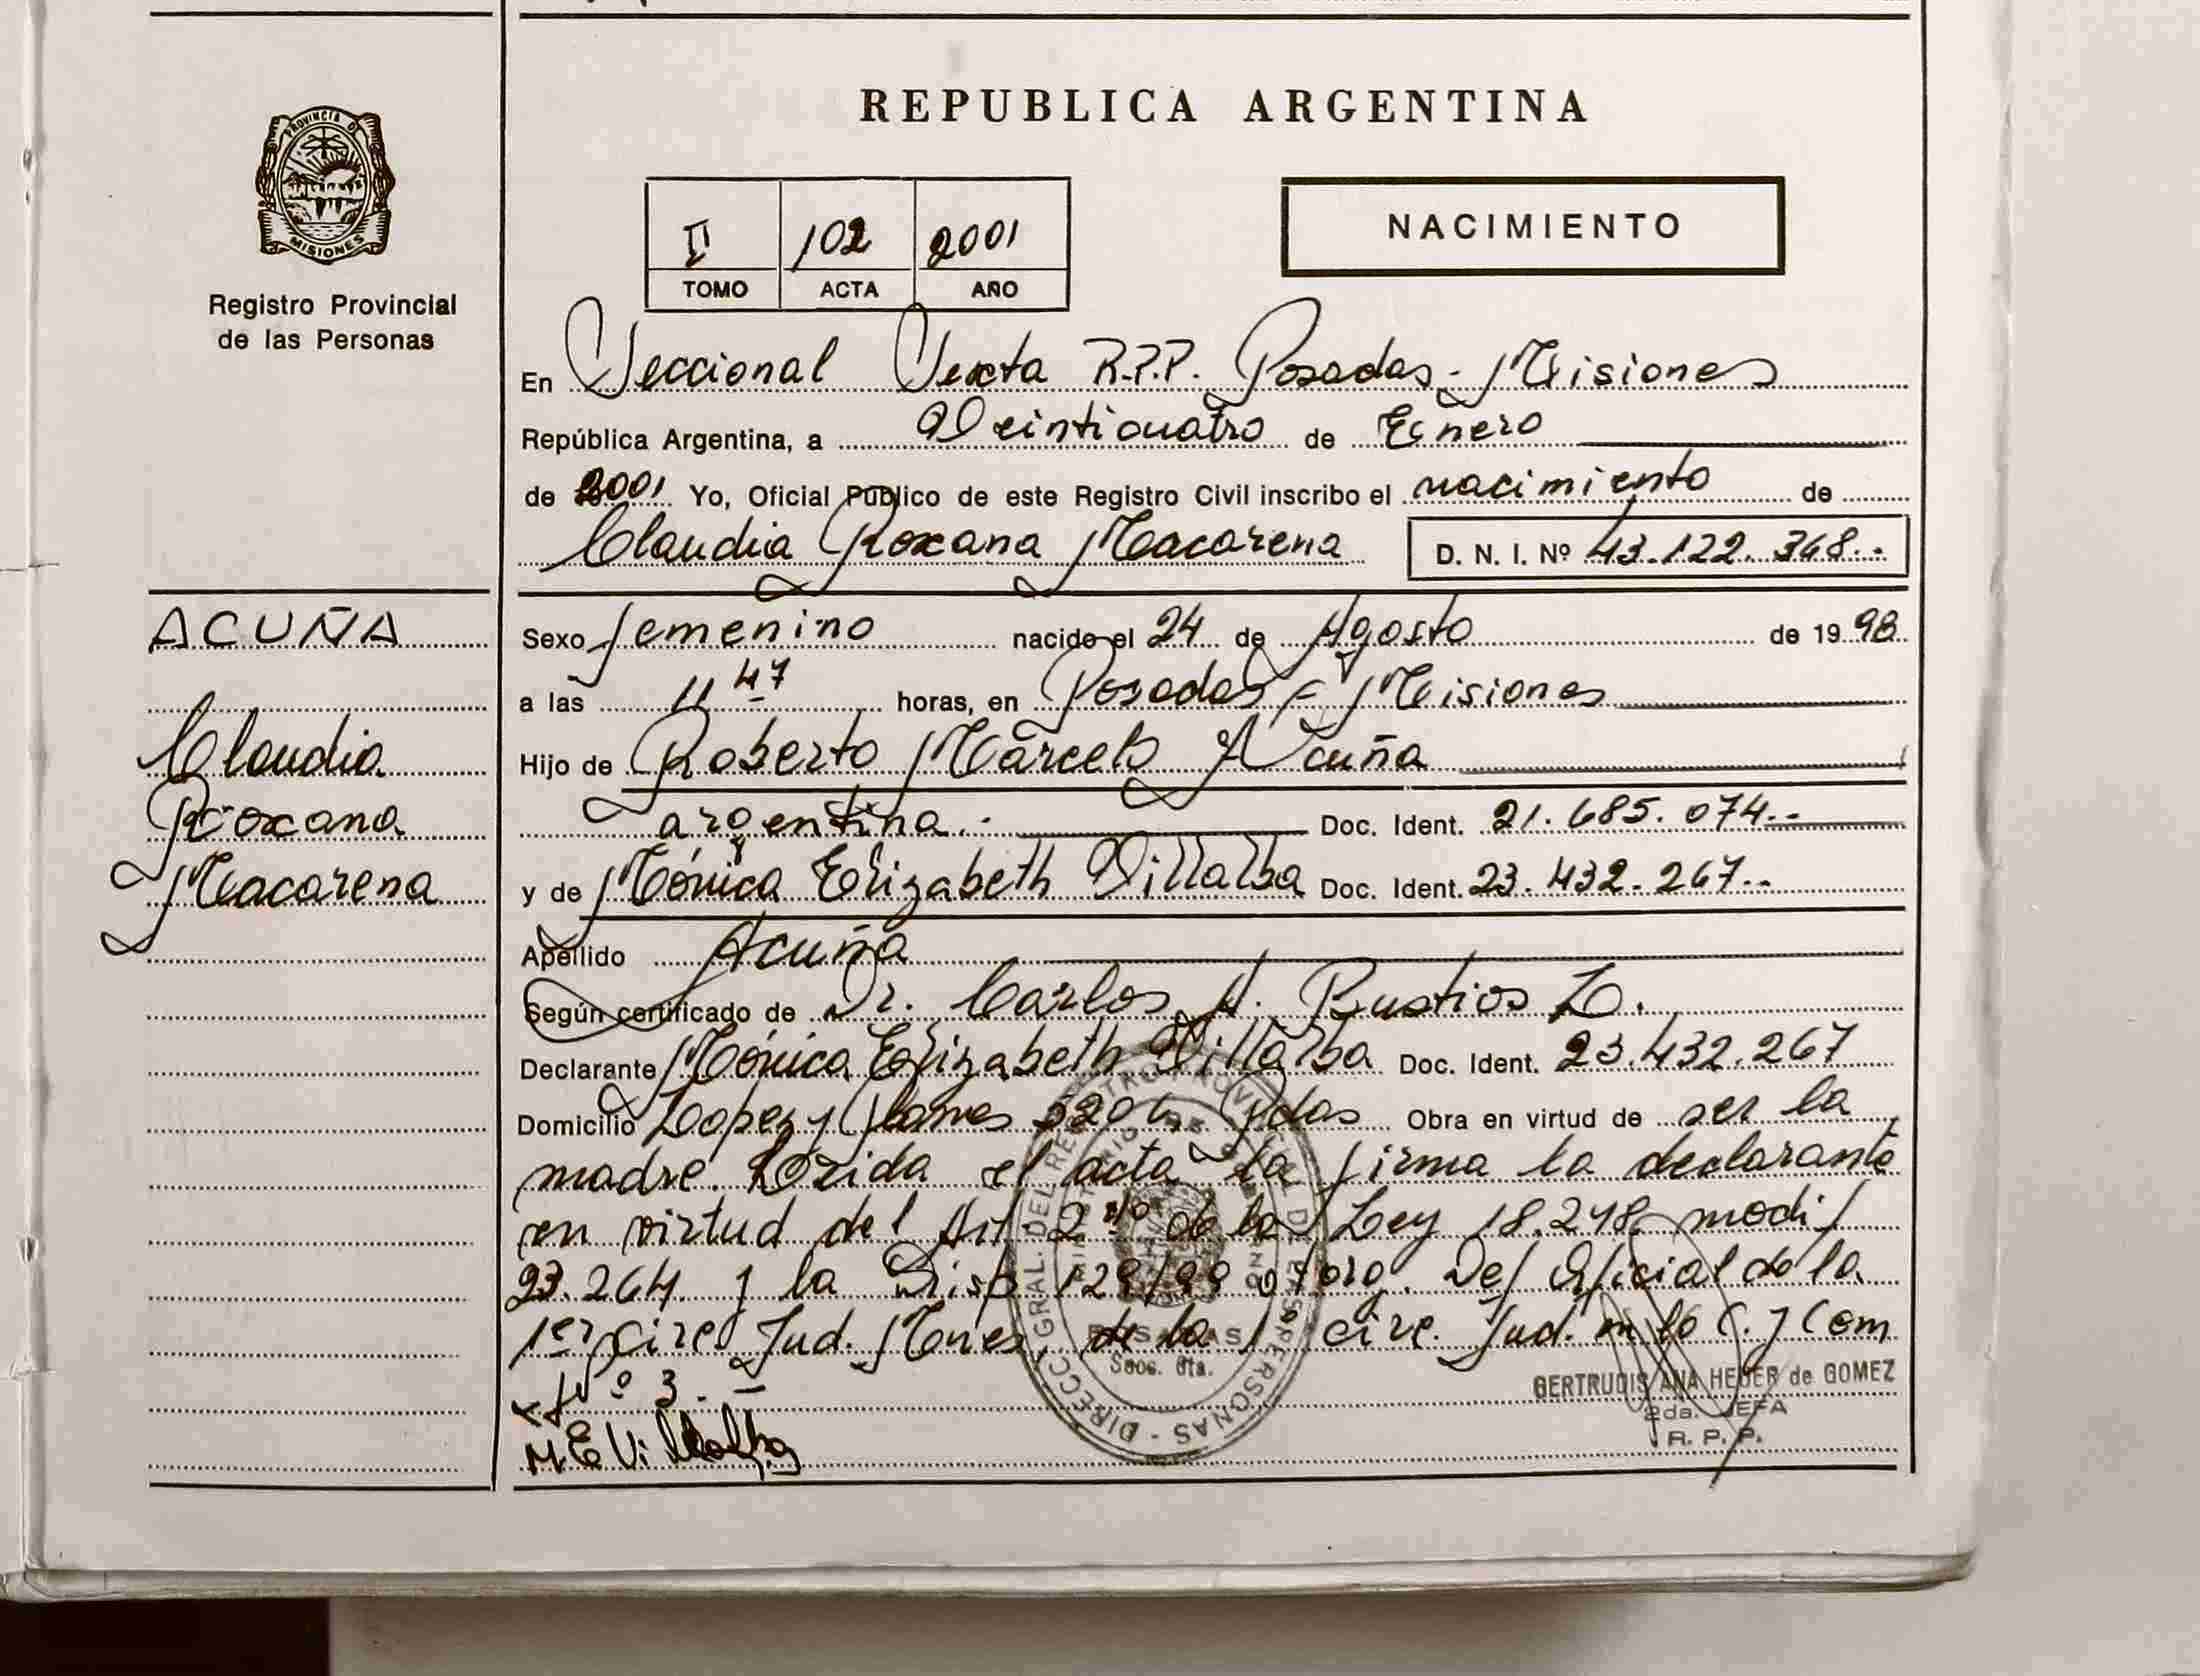 PROVINCIA DE
MISIONES
Registro Provincial
de las Personas
ACUÑA
Claudia
Roxana
Macarena
REPUBLICA ARGENTINA
II 102 2001
TOMO ACTA AÑO
NACIMIENTO
En Seccional Sexta R.P.P. Posadas - Misiones
República Argentina, a Veinticuatro de Enero
de 2001 Yo, Oficial Público de este Registro Civil inscribo el nacimiento de
Claudia Roxana Macarena D. N. I. Nº 43.122.368..
Sexo femenino nacido el 24 de Agosto de 1998
a las 11 47 horas, en Posadas - Misiones
Hijo de Roberto Marcelo Acuña
argentina.- Doc. Ident. 21.685.074.-
y de Mónica Elizabeth Villalba Doc. Ident. 23.432.267..
Apellido Acuña
Según certificado de Dr. Carlos A. Bustios Z.
Declarante Mónica Elizabeth Villalba Doc. Ident. 23.432.267
Domicilio Lopez y Planes Pdas Obra en virtud de ser la
madre. Leida el acta la firma la declarante
en virtud del Art 2 de la Ley 18.248 modif
23.264 y la Disp 129/99 otorg. Def Oficial de la
1er Circ Jud. Mnes, de la 1º circ. Jud. en lo C. y Com
Nº 3. -
M.E Villalba
DIRECC. GRAL. DEL REGISTRO PROVINCIAL DE LAS PERSONAS
POSADAS
Secc. 6ta.
GERTRUDIS ANA HEDER de GOMEZ
2da. JEFA
R. P. P.